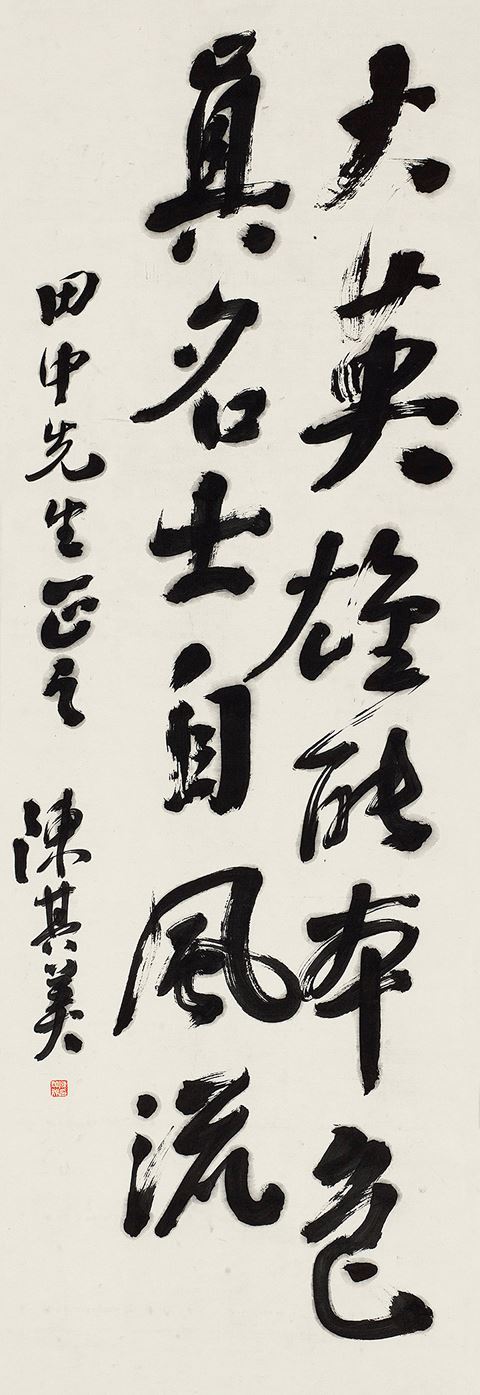 大英雄能本色
真名士自風流
田中先生正之
陳其美